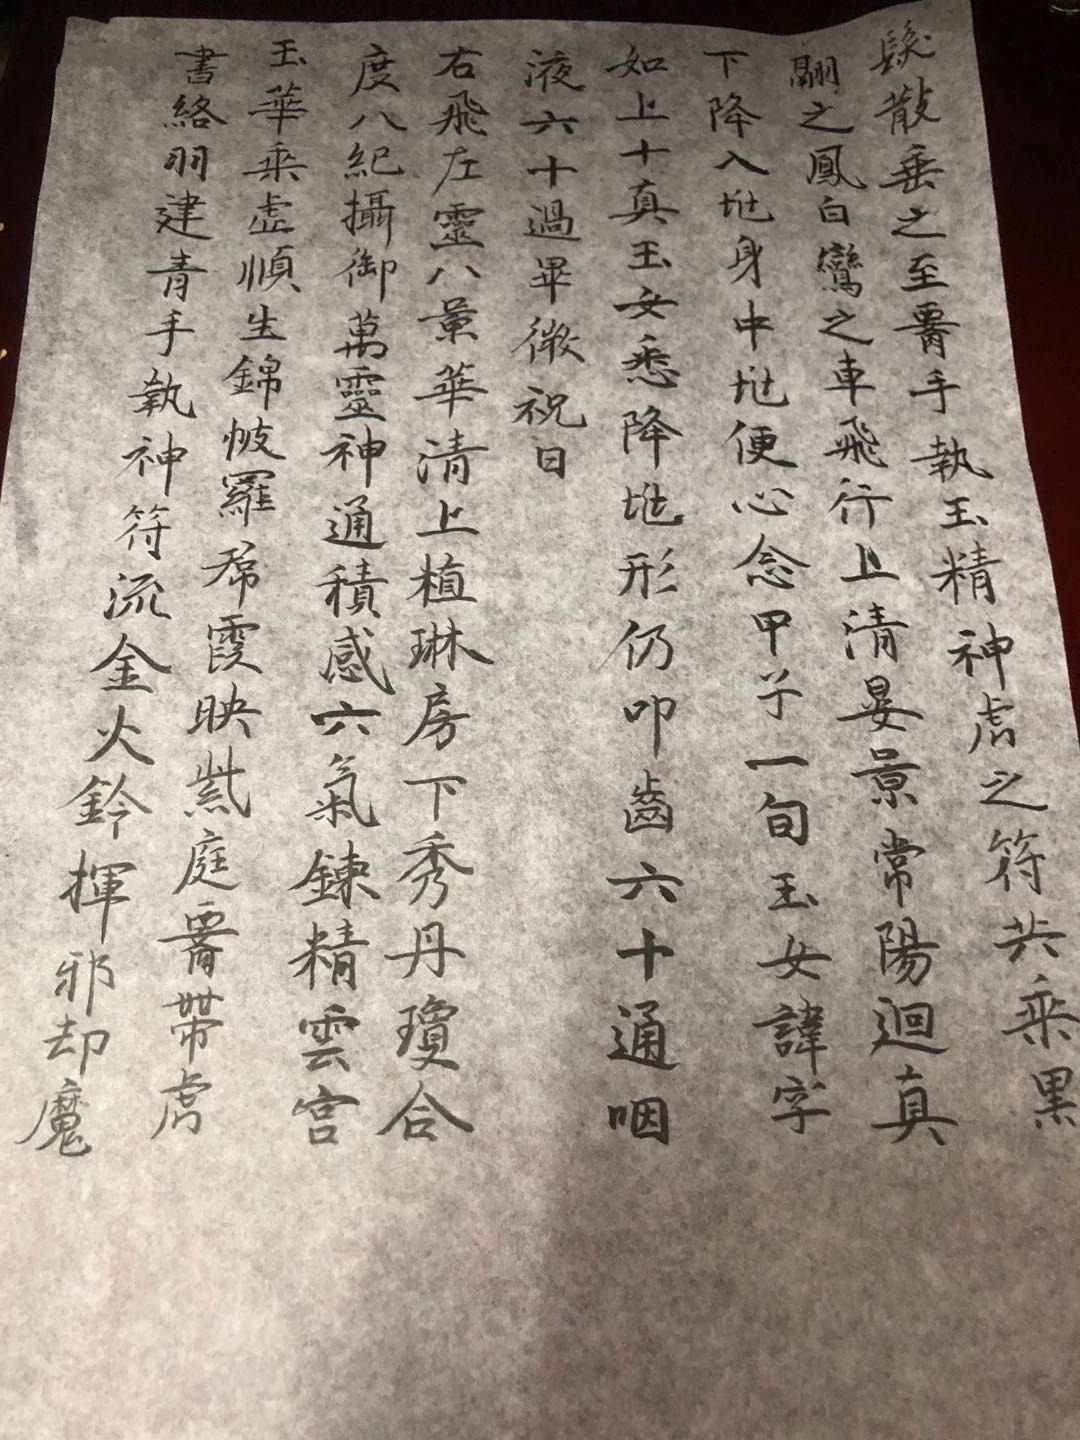 髮散垂之至署手執玉精神虎之符共乘黑
翮之鳳白鸞之車飛行上清晏景常陽迴真
下降入地身中地便心念甲子一旬玉女諱字
如上十真玉女悉降地形仍叩齒六十通咽
液六十過畢微祝曰
右飛左靈八景華清上植琳房下秀丹瓊合
度八紀攝御萬靈神通積感六氣鍊精雲宮
玉華乘虛順生錦帔羅帬霞映紫庭署帶虎
書絡羽建青手執神符流金火鈴揮邪却魔